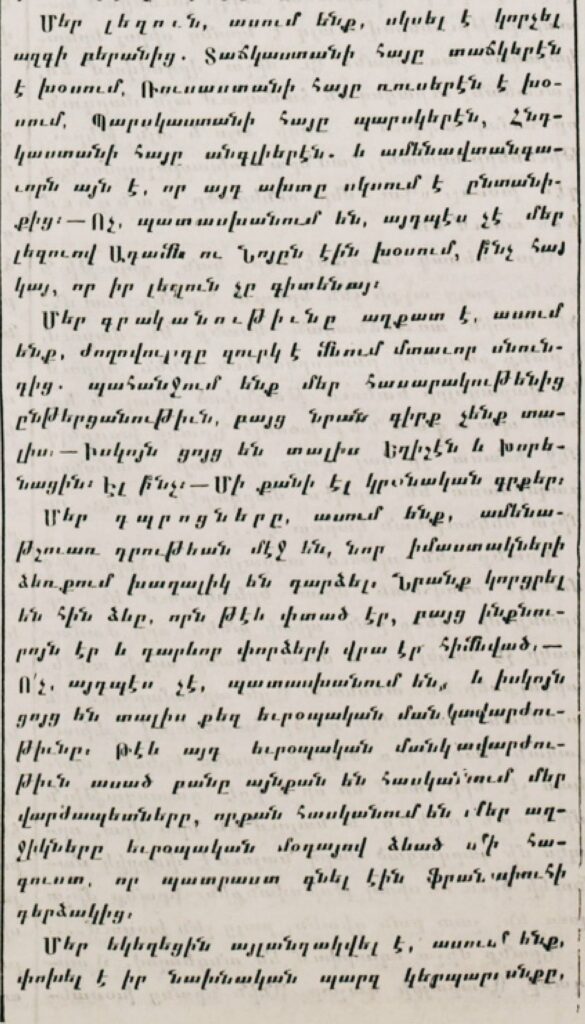 Մեր լեզուն, ասում ենք, սկսել է կորչել
ազգի բերանից. Տաճկաստանի հայը տաճկերէն
է խօսում, Ռուսաստանի հայը ռուսերէն է խօ-
սում, Պարսկաստանի հայը պարսկերէն, Հնդ-
կաստանի հայը անգլիերէն. և ամենավտանգա-
ւորն այն է, որ այդ ախտը սկսում է ընտանի-
քից։ — Ոչ, պատասխանում են, այդպէս չէ մեր
լեզուով Ադամն ու Նոյըն էին խօսում, ի՞նչ հայ
կայ, որ իր լեզուն չը գիտենայ։
Մեր գրականութիւնը աղքատ է, ասում
ենք, ժողովուրդը զուրկ է մնում մտաւոր սնուն-
դից. պահանջում ենք մեր հասարակութենից
ընթերցանութիւն, բայց նրան գիրք չենք տա-
լիս։ — Իսկոյն ցոյց են տալիս Եղիշէն և Խորե-
նացին։ Էլ ի՞նչ։ — Մի քանի էլ կրօնական գրքեր։
Մեր դպրոցները, ասում ենք, ամենա-
թշուառ դրութեան մէջ են, նոր իմաստակների
ձեռքում խաղալիկ են դարձել. Նրանք կորցրել
են հին ձեը, որն թէև փտած էր, բայց ինքնու-
րոյն էր և դարևոր փորձերի վրա էր հիմնված. —
Ո՛չ, այդպէս չէ, պատասխանում են, և իսկոյն
ցոյց են տալիս քեզ եւրօպական մանկավարժու-
թիւնը։ Թէև այդ եւրօպական մանկավարժու-
թիւն ասած բանը այնքան են հասկանում մեր
վարժապետները, որքան հասկանում են մեր աղ-
ջիկները եւրօպական մօդայով ձեած մի հա-
գուստ, որ պատրաստ գնել էին ֆրանսիուհի
դերձակից։
Մեր եկեղեցին այլանդակվել է, ասում ենք,
փոխել է իր նախնական պարզ կերպարանքը,